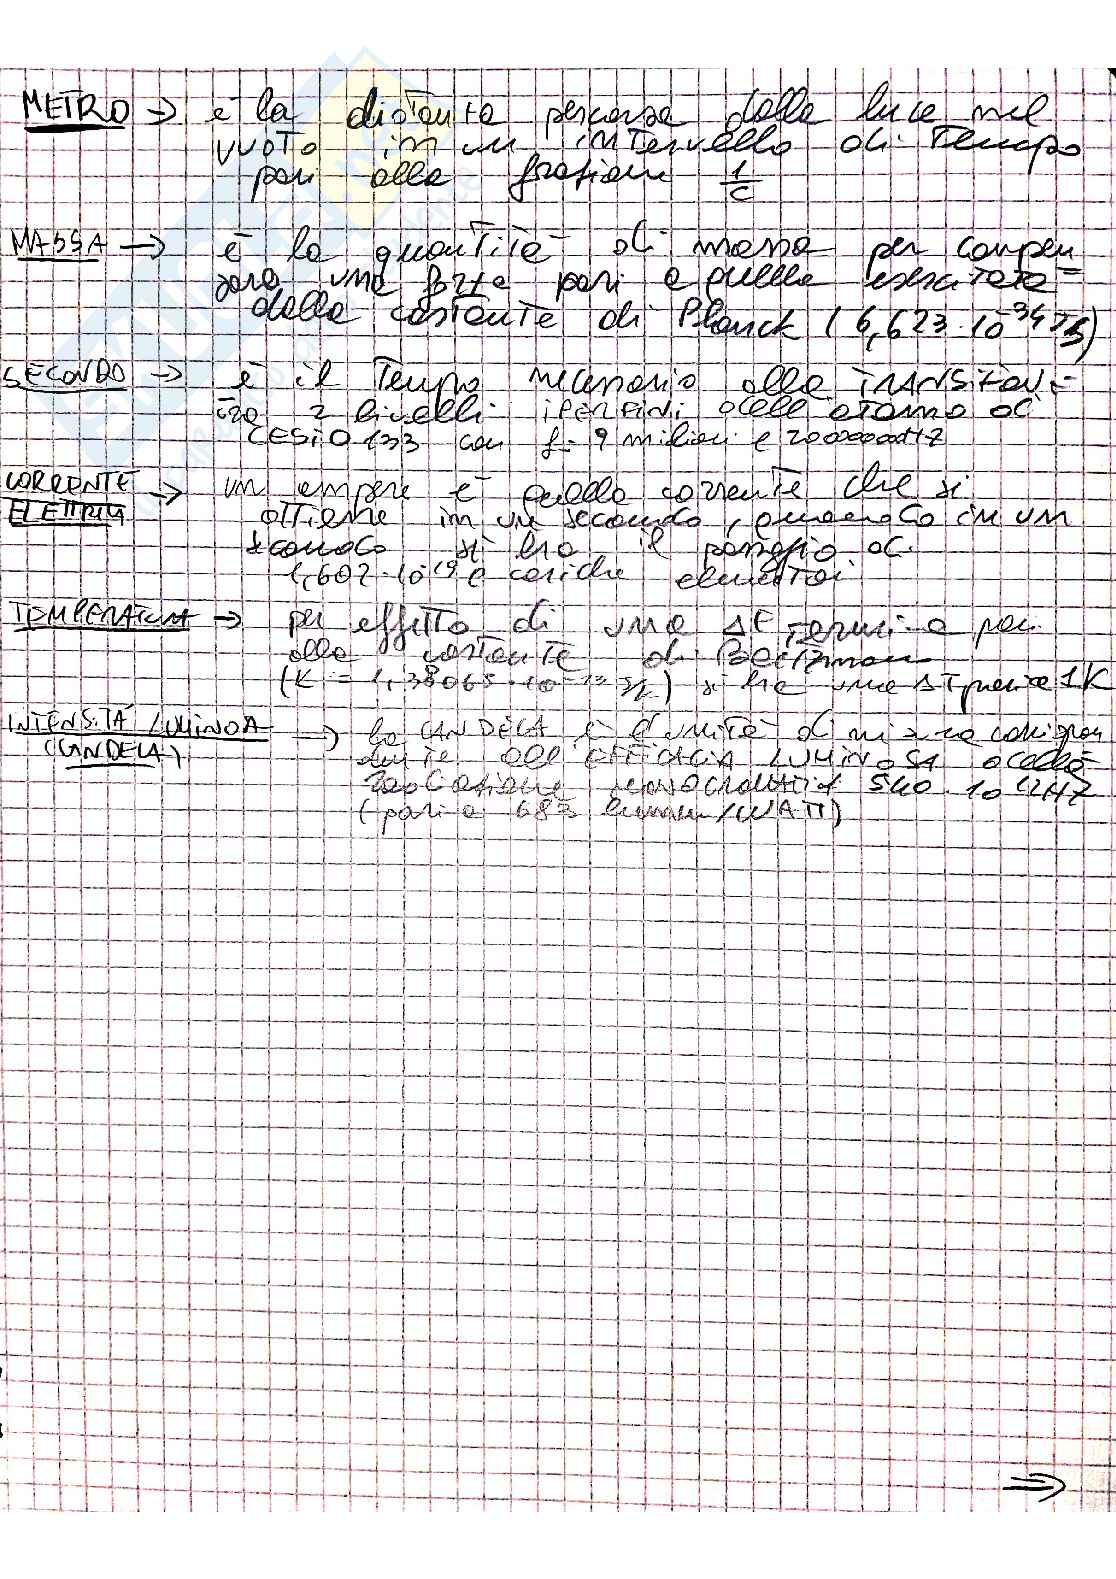 METRO → è la distanza percorsa dalla luce nel
vuoto in un intervallo di Tempo
pari alla frazione 1/c
MASSA → è la quantità di massa per compen
sare una forza pari a quella esercitata
dalla costante di Planck (6,623·10^-34 Js)
SECONDO → è il Tempo necessario alla TRANSIZIONE
tra 2 livelli IPERFINI dell atomo di
CESIO 133 con f= 9 milioni e 200000000 Hz
CORRENTE ELETTRICA → un ampere è quella corrente che si
ottiene in un secondo, quando in un
secondo si ha il passaggio di
1,602·10^19 e cariche elementari
TEMPERATURA → per effetto di una ΔE termica pari
alla costante di Boltzmann
(K = 1,38065·10^-23 J/K) si ha una ΔT pari a 1K
INTENSITÁ LUMINOSA (CANDELA) → la CANDELA è l'unità di misura corrispon
dente all'EFFICACIA LUMINOSA della
radiazione monocromatica 540·10^12 Hz
(pari a 683 lumen/WATT)
⇒